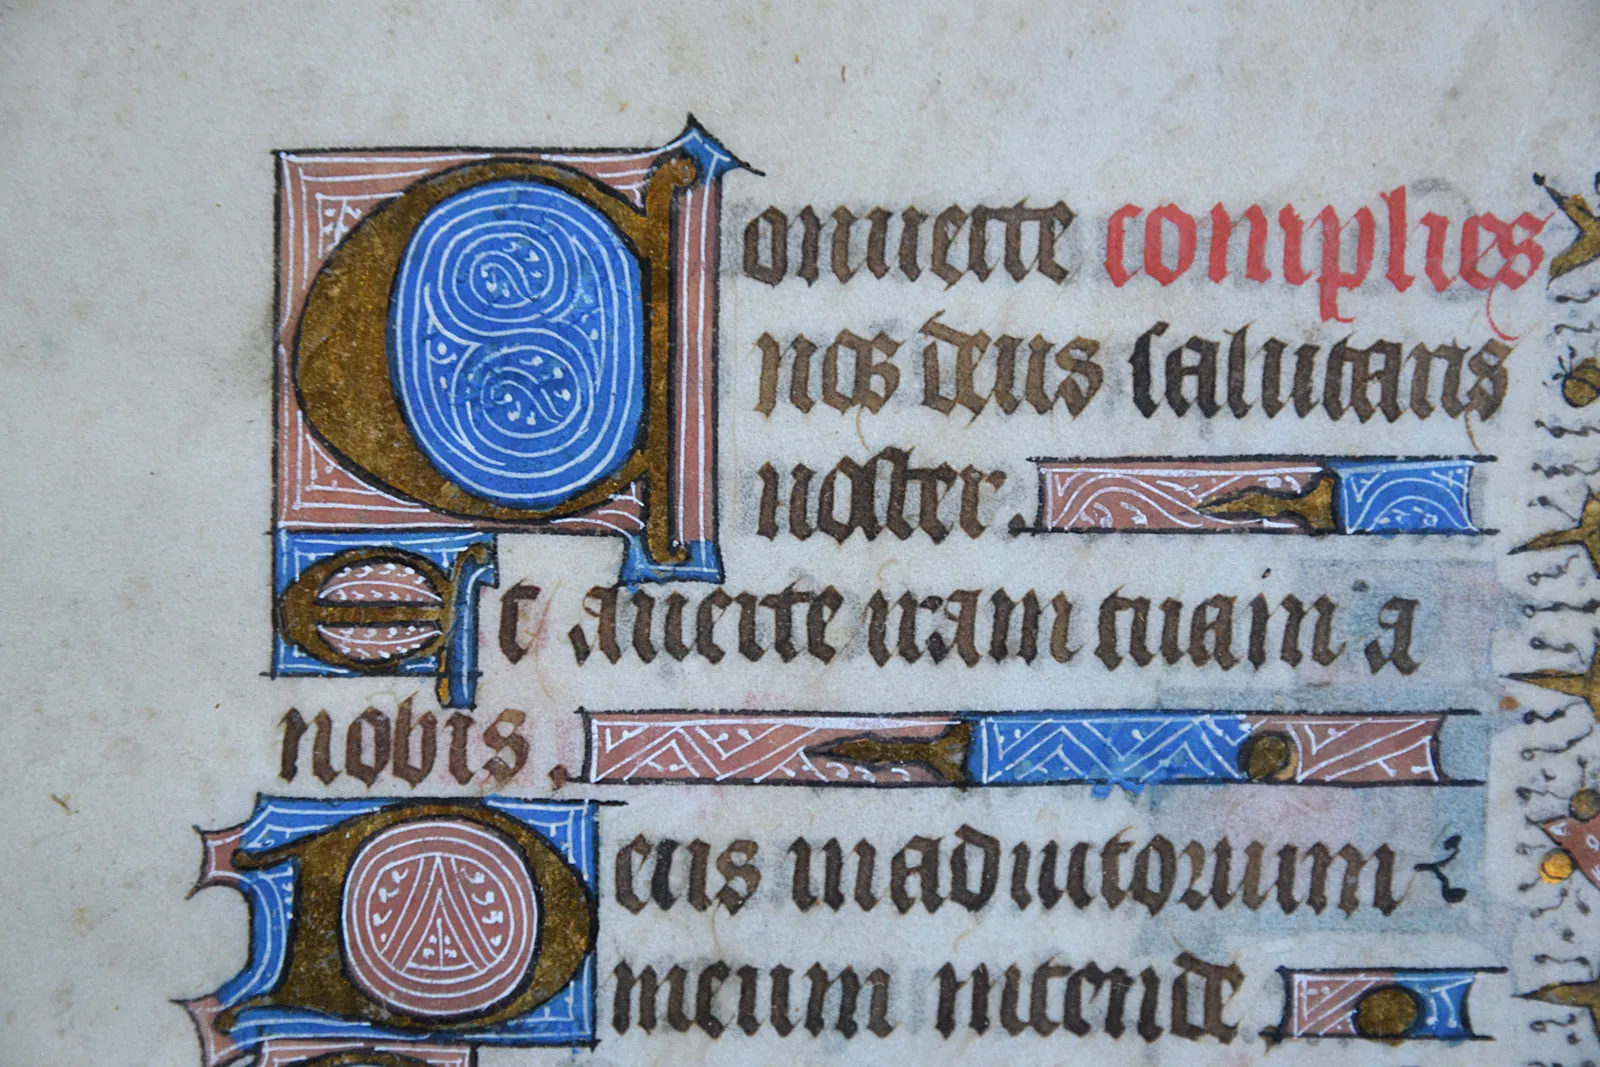 Conuerte complies
nos deus salutaris
noster.
Et auerte iram tuam a
nobis.
Deus in adiutorium
meum intende.